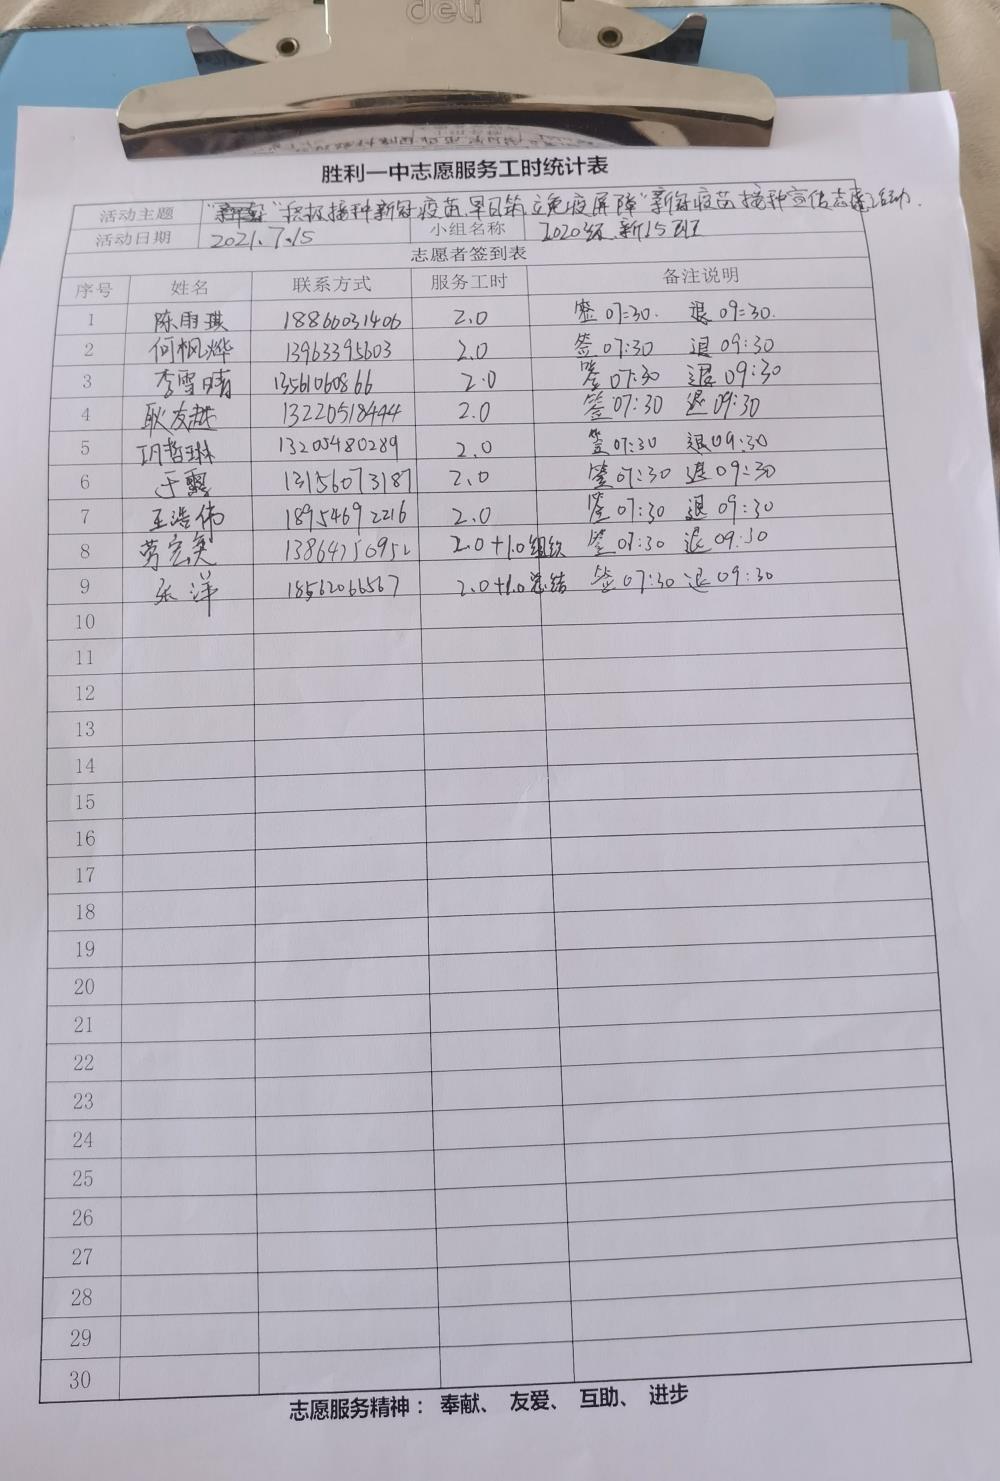 deli
胜利一中志愿服务工时统计表
活动主题 "积极接种新冠疫苗,早日筑立免疫屏障"新冠疫苗接种宣传志愿活动.
活动日期 2021.7.15 小组名称 2020级.新15班
志愿者签到表
序号 姓名 联系方式 服务工时 备注说明
1 陈雨琪 18866031406 2.0 签 07:30. 退 09:30.
2 何枫烨 13963395603 2.0 签 07:30 退 09:30
3 李雪晴 13561060866 2.0 签 07:30 退 09:30
4 耿友越 13220518444 2.0 签 07:30 退 09:30
5 哲琳 13205480289 2.0 签 07:30 退 09:30
6 于 13156073187 2.0 签 07:30 退 09:30
7 王浩伟 18954692216 2.0 签 07:30 退 09:30
8 劳宏 2.0+1.0组织 签 07:30 退 09:30
9 张洋 18562066567 2.0+1.0总结 签 07:30 退 09:30
10
11
12
13
14
15
16
17
18
19
20
21
22
23
24
25
26
27
28
29
30
志愿服务精神： 奉献、 友爱、 互助、 进步